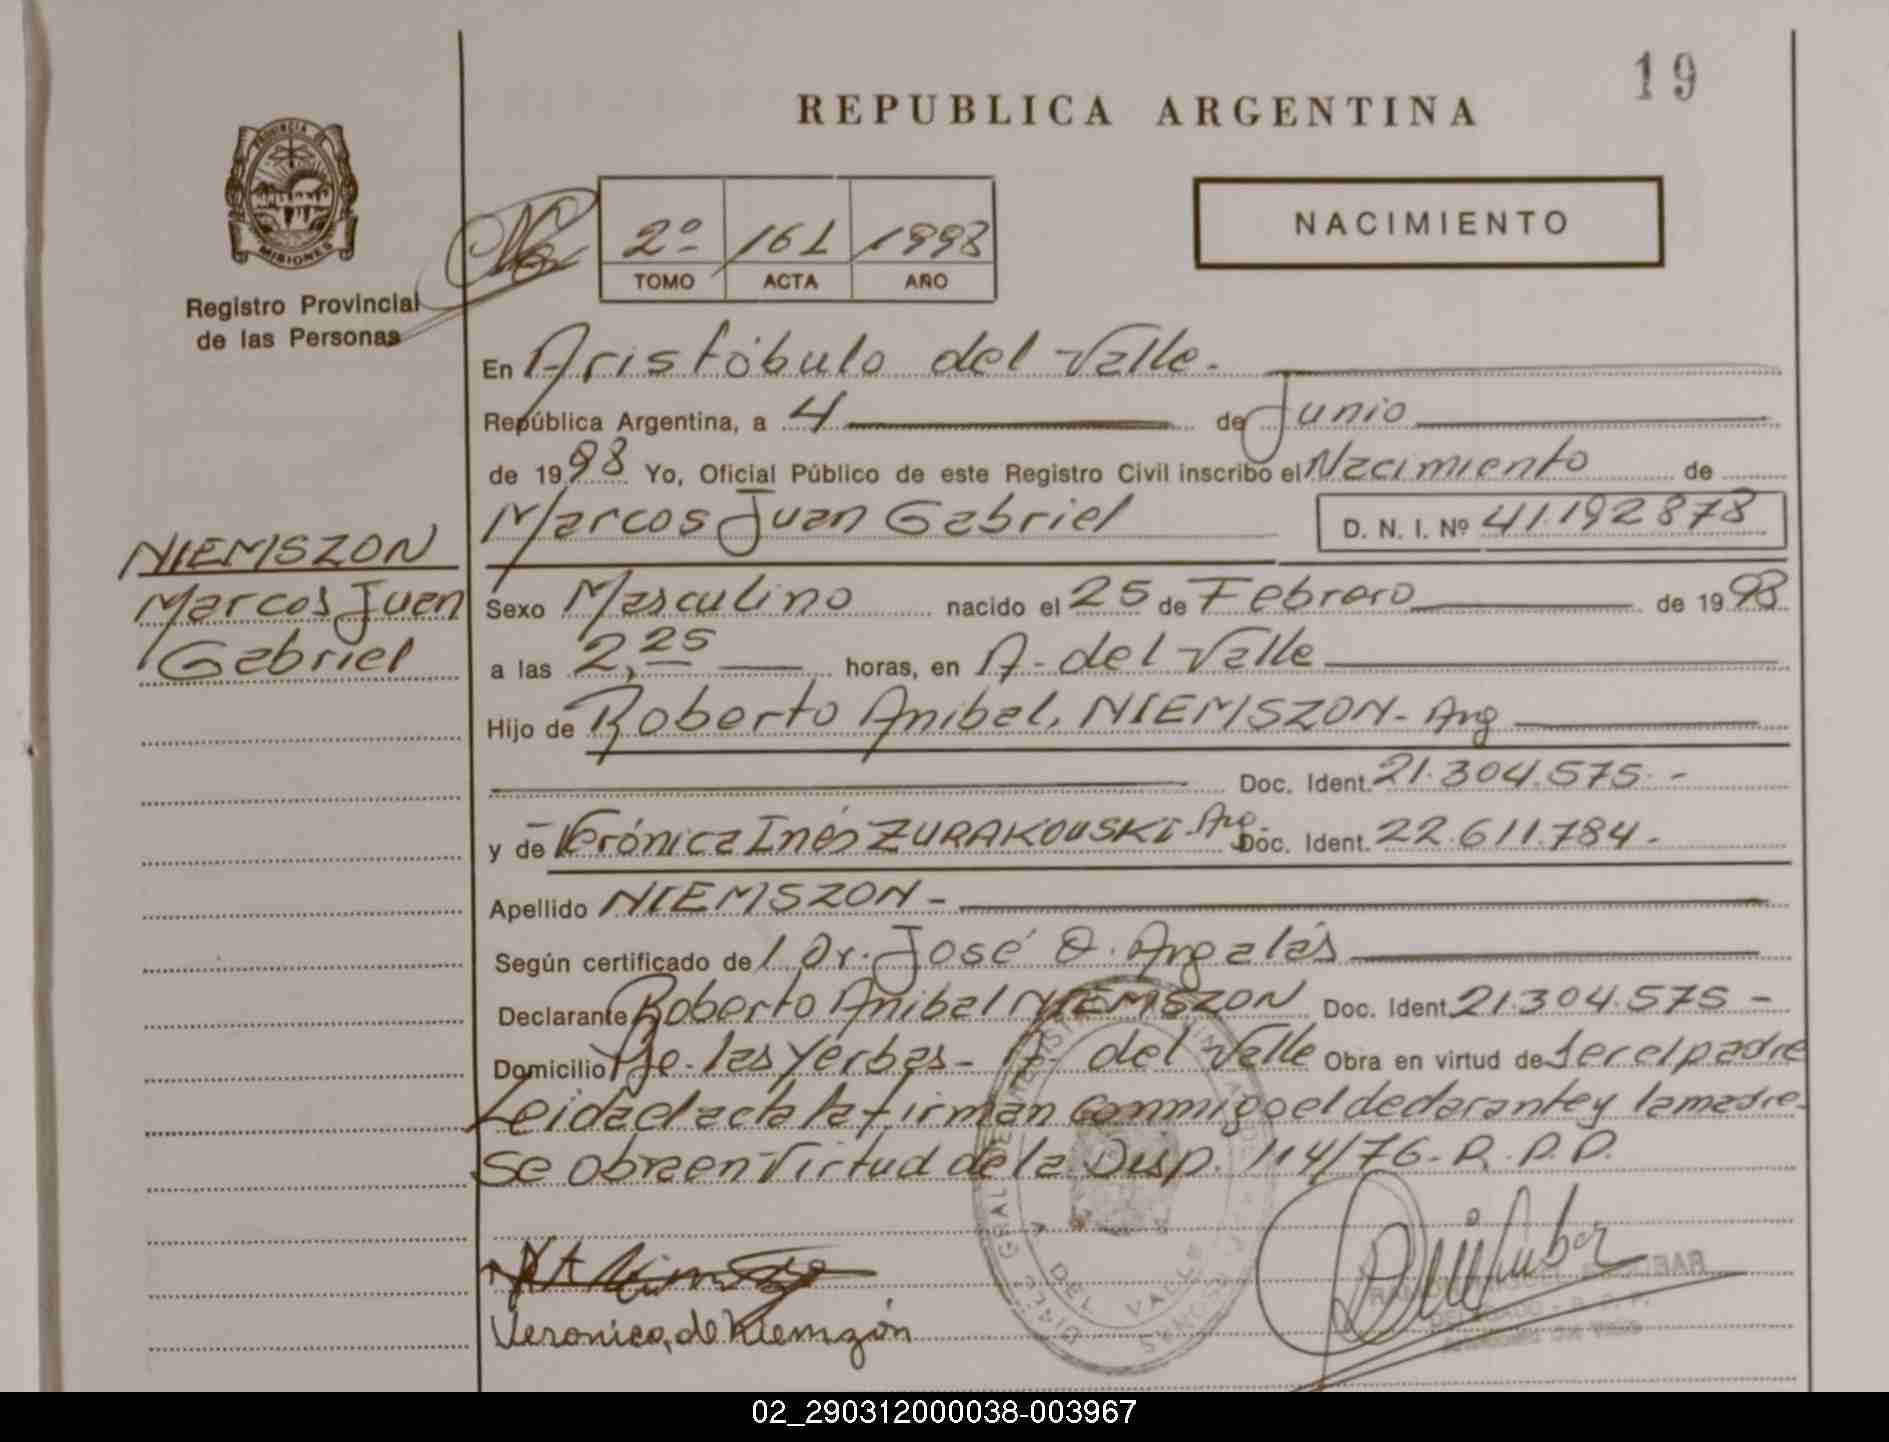 19
REPUBLICA ARGENTINA
PROVINCIA DE
MISIONES
Registro Provincial
de las Personas
NACIMIENTO
2º 161 1998
TOMO ACTA AÑO
En Aristóbulo del Valle.
República Argentina, a 4 de Junio
de 1998 Yo, Oficial Público de este Registro Civil inscribo el Nacimiento de
Marcos Juan Gabriel D. N. I. Nº 41.192878
NIEMSZON
Marcos Juan
Gabriel
Sexo Masculino nacido el 25 de Febrero de 1998
a las 2,25 horas, en A. del Valle
Hijo de Roberto Anibal, NIEMSZON- Arg
Doc. Ident. 21.304.575.-
y de Verónica Inés ZURAKOUSKI-Arg- Doc. Ident. 22.611.784-
Apellido NIEMSZON-
Según certificado de l Dr. José O. Argalás
Declarante Roberto Anibal NIEMSZON Doc. Ident. 21.304.575-
Domicilio Bo. las Yerbas- A. del Valle Obra en virtud de ser el padre
Leida el acta la firman conmigo el declarante y la madre-
Se obra en Virtud de la Disp. 114/76-R.P.P.
Veronica, de Niemzón
DEL VALLE
02_290312000038-003967